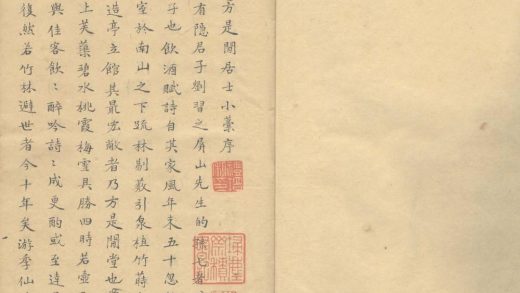 方是閒居士小藁序
有隐居子劉習之屏山先生的
子也飲酒賦詩自其家風年未五十忽
室於南山之下疏林剔薮引泉植竹蒔
造亭立館其最宏敞者乃方是閒堂也
上芙蕖碧水桃霞梅雪具勝四時若壺
與佳客飲〻醉吟詩〻成更酌或至達
復然若竹林避世者今十年矣游季仙